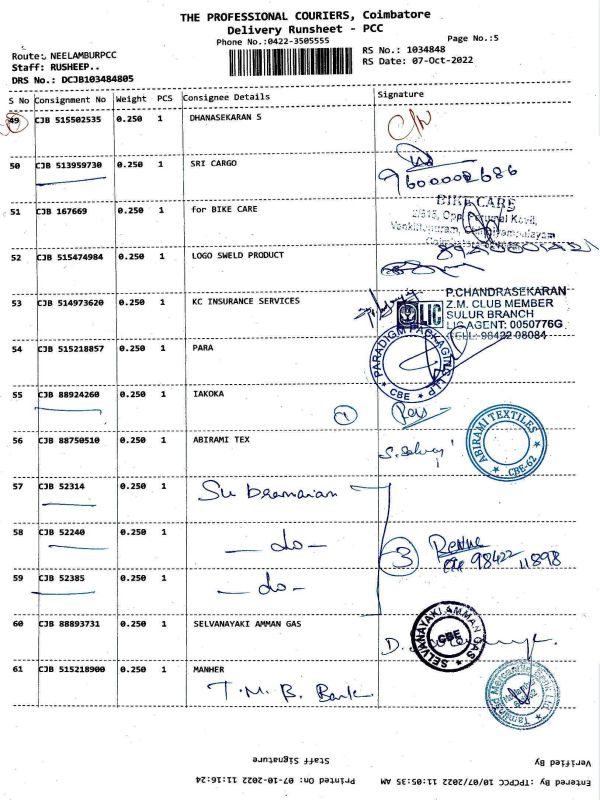 THE PROFESSIONAL COURIERS, Coimbatore
Delivery Runsheet - PCC
Phone No.:0422-3505555
Page No.:5
Route: NEELAMBURPCC
RS No.: 1034848
Staff: RUSHEEP..
RS Date: 07-Oct-2022
DRS No.: DCJB103484805
S No Consignment No Weight PCS Consignee Details Signature
49 CJB 515502535 0.250 1 DHANASEKARAN S
50 CJB 513959730 0.250 1 SRI CARGO
9600002686
51 CJB 167669 0.250 1 for BIKE CARE
BIKE CARE
2/515, Opp. Perumal Kovil,
52 CJB 515474984 0.250 1 LOGO SWELD PRODUCT
53 CJB 514973620 0.250 1 KC INSURANCE SERVICES
LIC
P.CHANDRASEKARAN
Z.M. CLUB MEMBER
SULUR BRANCH
LIC AGENT: 0050776G
CELL: 98422 08084
54 CJB 515218857 0.250 1 PARA
PARADIGM PACKAGING LLP
CBE
55 CJB 88924260 0.250 1 IAKOKA
1
56 CJB 88750510 0.250 1 ABIRAMI TEX
S. Selvaj
ABIRAMI TEXTILES
CBE-62
57 CJB 52314 0.250 1 Subramanian
58 CJB 52240 0.250 1 — do —
3
98422 11898
59 CJB 52385 0.250 1 — do —
60 CJB 88893731 0.250 1 SELVANAYAKI AMMAN GAS
SELVANAYAKI AMMAN GAS
CBE
61 CJB 515218900 0.250 1 MANHER
T.M.B. Bank
Tamilnad Mercantile Bank Ltd.
Staff Signature
Verified By
Printed On: 07-10-2022 11:16:24
Entered By :TPCPCC 10/07/2022 11:05:35 AM